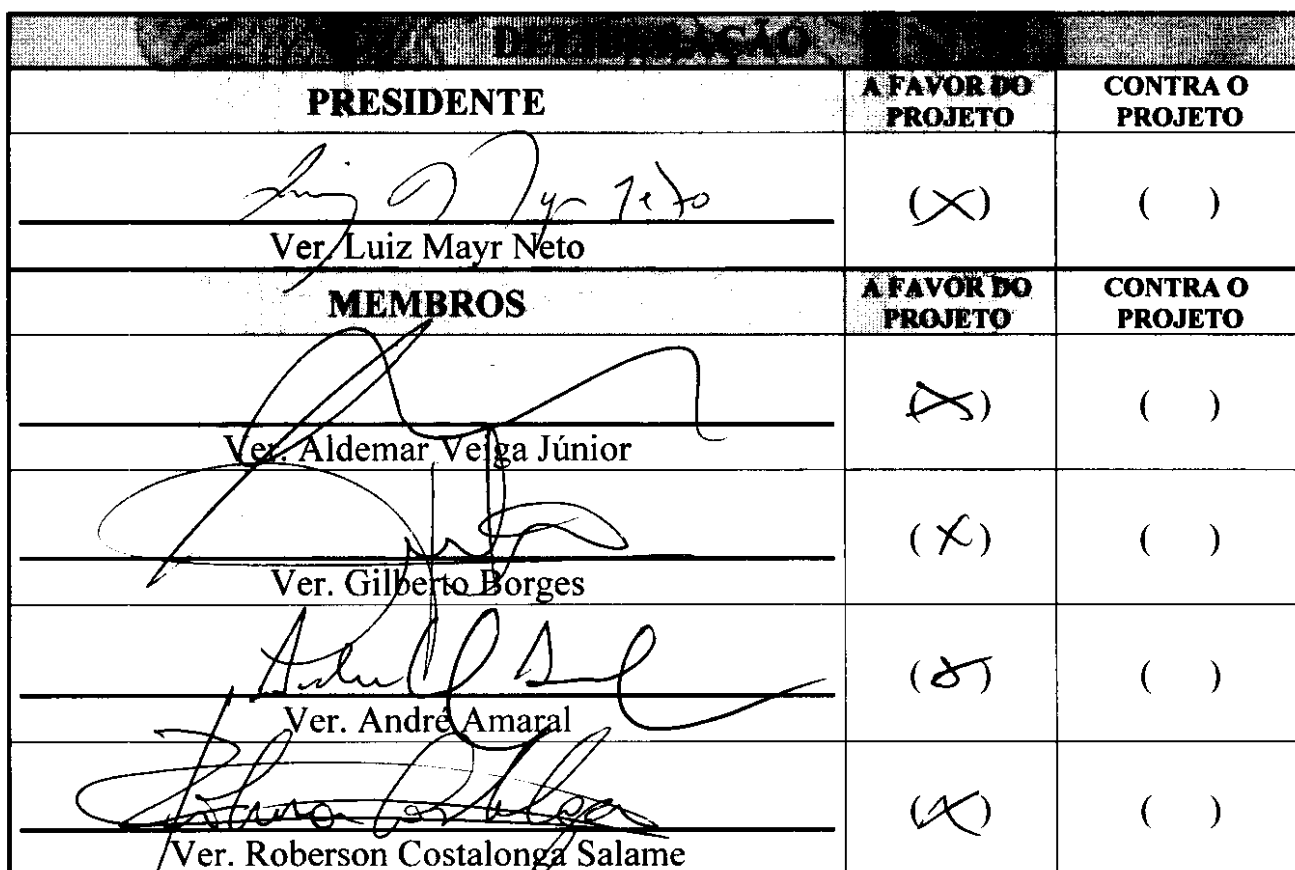 DELIBERAÇÃO
PRESIDENTE
A FAVOR DO PROJETO
CONTRA O PROJETO
Luiz Mayr Neto
(X)
( )
Ver. Luiz Mayr Neto
MEMBROS
A FAVOR DO PROJETO
CONTRA O PROJETO
(X)
( )
Ver. Aldemar Veiga Júnior
(X)
( )
Ver. Gilberto Borges
(X)
( )
Ver. André Amaral
(X)
( )
Ver. Roberson Costalonga Salame